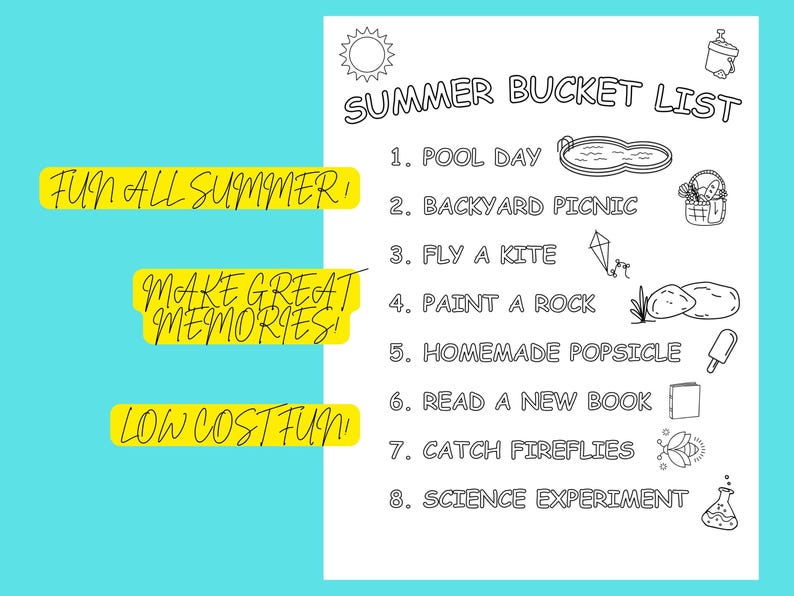 SUMMER BUCKET LIST
FUN ALL SUMMER!
MAKE GREAT
MEMORIES!
LOW COST FUN!
1. POOL DAY
2. BACKYARD PICNIC
3. FLY A KITE
4. PAINT A ROCK
5. HOMEMADE POPSICLE
6. READ A NEW BOOK
7. CATCH FIREFLIES
8. SCIENCE EXPERIMENT